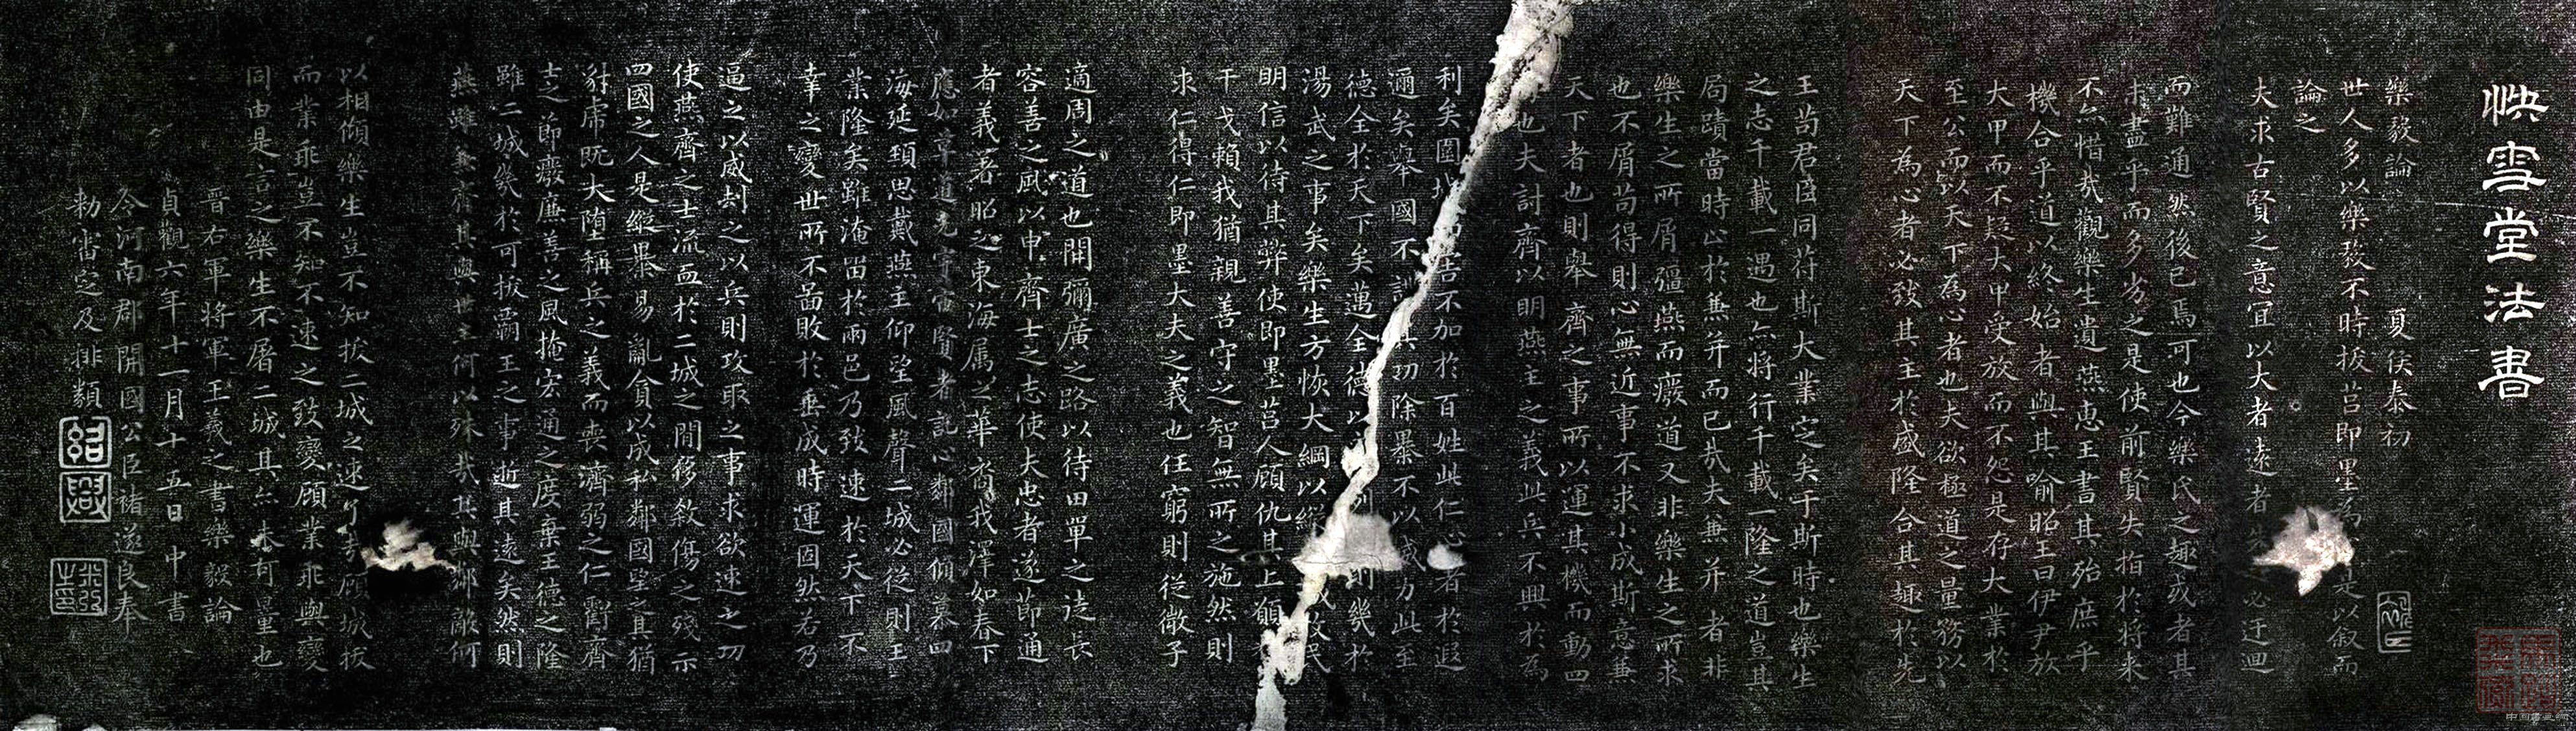 快雪堂法書
樂毅論 夏侯泰初
世人多以樂毅不時拔莒即墨為是以叙而
論之
夫求古賢之意宜以大者遠者先必迂迴
而難通然後已焉可也今樂氏之趣或者其
未盡乎而多劣之是使前賢失指於将来
不亦惜哉觀樂生遺燕惠王書其殆庶乎
機合乎道以終始者與其喻昭王曰伊尹放
大甲而不疑大甲受放而不怨是存大業於
至公而以天下為心者也夫欲極道之量務以
天下為心者必致其主於盛隆合其趣於先
王苟君臣同符斯大業定矣于斯時也樂生
之志千載一遇也亦将行千載一隆之道豈其
局蹟當時止於兼并而已哉夫兼并者非
樂生之所屑彊燕而廢道又非樂生之所求
也不屑苟得則心無近事不求小成斯意兼
天下者也則舉齊之事所以運其機而動四
也夫討齊以明燕主之義此兵不興於為
利矣圍城害不加於百姓此仁心著於遐
邇矣舉國不其功除暴不以威力此至
德全於天下矣邁全德以列則幾於
湯武之事矣樂生方恢大綱以縱收民
明信以待其弊使即墨莒人顧仇其上願
干戈賴我猶親善守之智無所之施然則
求仁得仁即墨大夫之義也任窮則從微子
適周之道也開彌廣之路以待田單之徒長
容善之風以申齊士之志使夫忠者遂節通
者義著昭之東海属之華裔我澤如春下
應如草道光宇宙賢者託心鄰國傾慕四
海延頸思戴燕主仰望風聲二城必從則王
業隆矣雖淹留於兩邑乃致速於天下不
幸之變世所不圖敗於垂成時運固然若乃
逼之以威劫之以兵則攻取之事求欲速之功
使燕齊之士流血於二城之間侈殺傷之殘示
四國之人是縱暴易亂貪以成私鄰國望之其猶
豺虎既大墮稱兵之義而喪濟弱之仁虧齊
士之節廢廉善之風掩宏通之度棄王德之隆
雖二城幾於可拔霸王之事逝其遠矣然則
燕雖兼齊其與世主何以殊哉其與鄰敵何
以相傾樂生豈不知拔二城之速了哉顧城拔
而業乖豈不知不速之致變顧業乖與變
同由是言之樂生不屠二城其亦未可量也
晉右軍将軍王羲之書樂毅論
貞觀六年十一月十五日中書
令河南郡開國公臣褚遂良奉
勅審定及排類